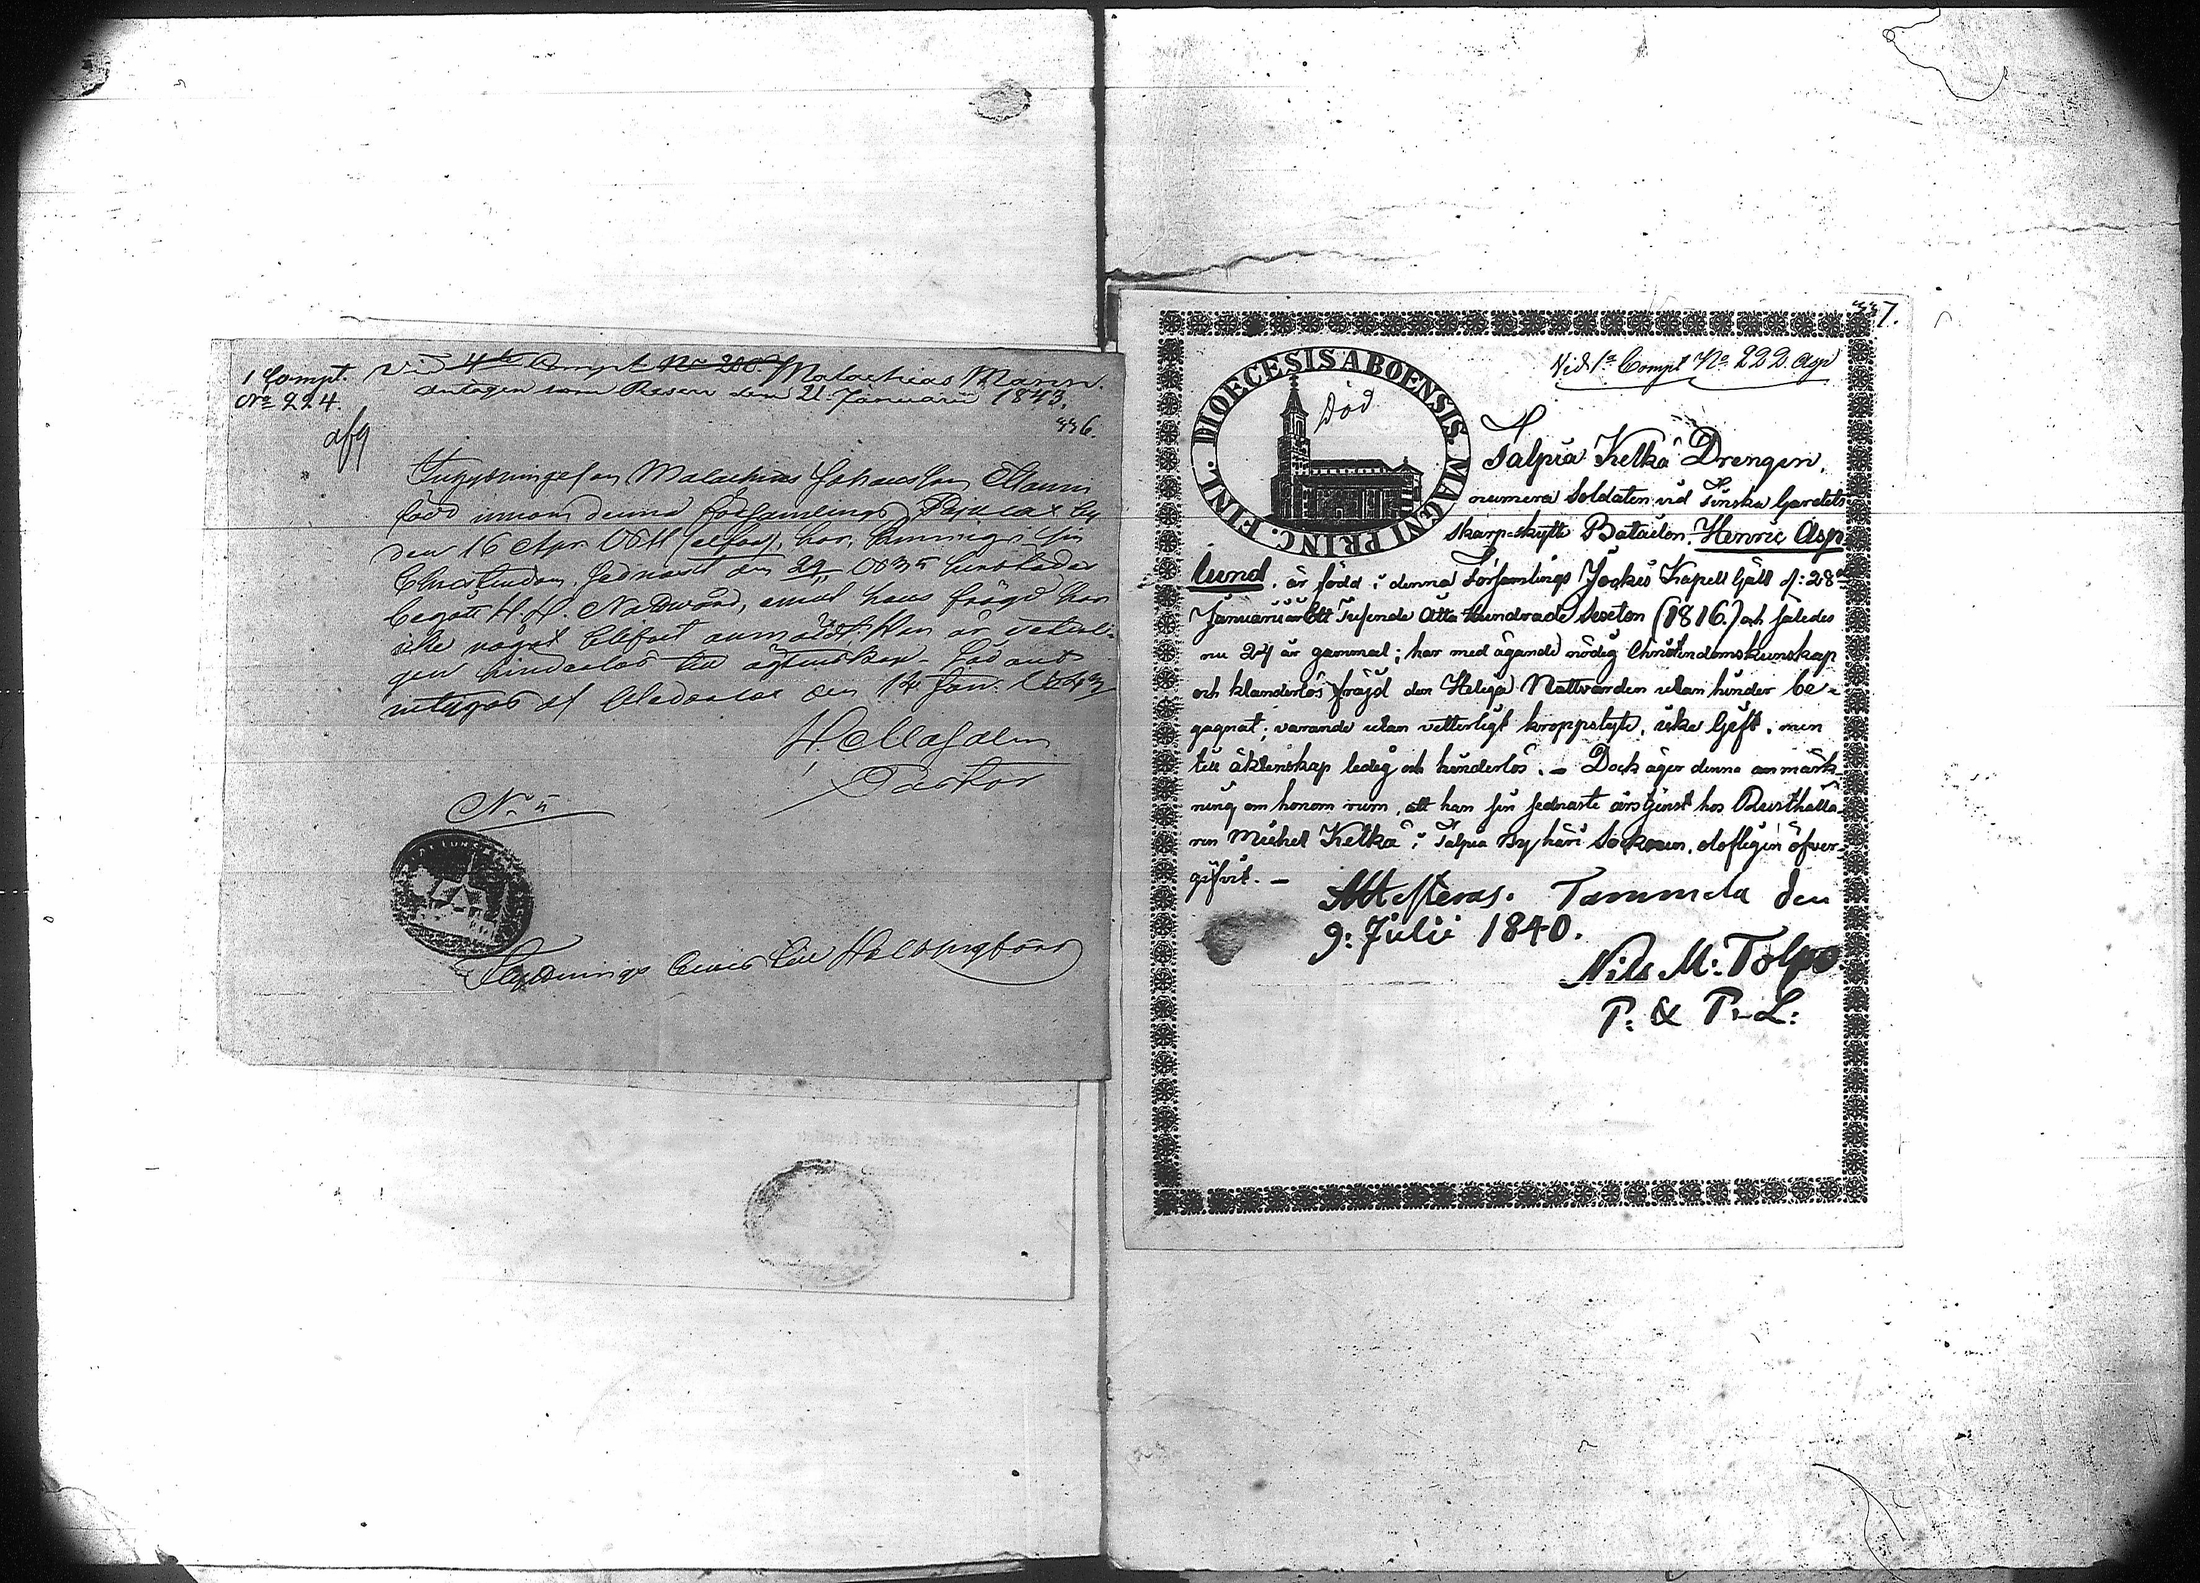 1 Compt.
No 224.
afg
Vid 4de Compt No 200. Malachias Mann.
antagen som Reserv den 21 Januarii 1843.
336.
Ynglingen Malachias Johansson Mann
född innom denna församlings by
den 16 Apr. 1811 (elfva), har kunnige sin
Christendom, sednast den 29 1835
begått H. H. Nattward, emot hans frägd har
icke något blifvit anmäldt. Han är veterli-
gen hinderlös till ägtenskap. Sådant
intygas af den 14 Jan. 1843
Pastor
No 5
Flyttnings bewis till Helsingfors
337.
Vid 1a Compt No 222. Asp
DIOECESIS ABOENSIS. MAGNI PRINC. FINL.
Död
Talpia Kelkä Drengen,
numera Soldaten vid Finska Gardets
skarp-skytte Bataillon, Henric Asp
lund, är född i denna Församlings Jockis Kapell Gäll d: 28de
Januarii Ett Tusende Åtta Hundrade Sexton (1816.) och således
nu 24 år gammal; har med ägande nödig Christendomskunskap
och klanderlös fräjd den Heliga Nattvarden utan hinder be-
gagnat; varande utan vetterligt kroppslyte, icke Gift, men
till äktenskap ledig och hinderlös. - Dock äger denna anmärk-
ning om honom rum, att han sin sednaste årstjenst hos Rusthålla-
ren Michel Kelkä i Talpia By häri Socknen, olofligen öfver-
gifvit. -
Attesteras. Tammela den
9: Julii 1840.
Nils M: Tolpo.
P: & P. L: